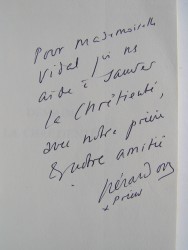 Pour mademoiselle
Vidal qui ns
aide à sauver
la Chrétienté,
avec notre prière
& notre amitié
gérard
+ prieur